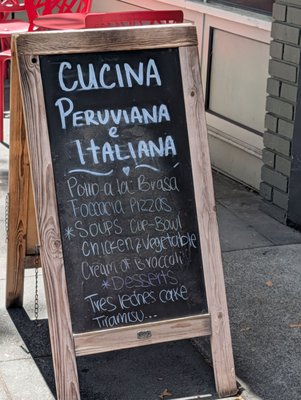 CUCINA
PERUVIANA
e
ITALIANA
Pollo a la Brasa
Foccacia Pizzas
*SOUPS Cup-Bowl
Chicken & Vegetable
Cream of Broccoli
*DESSERTS
Tres leches cake
Tiramisu...